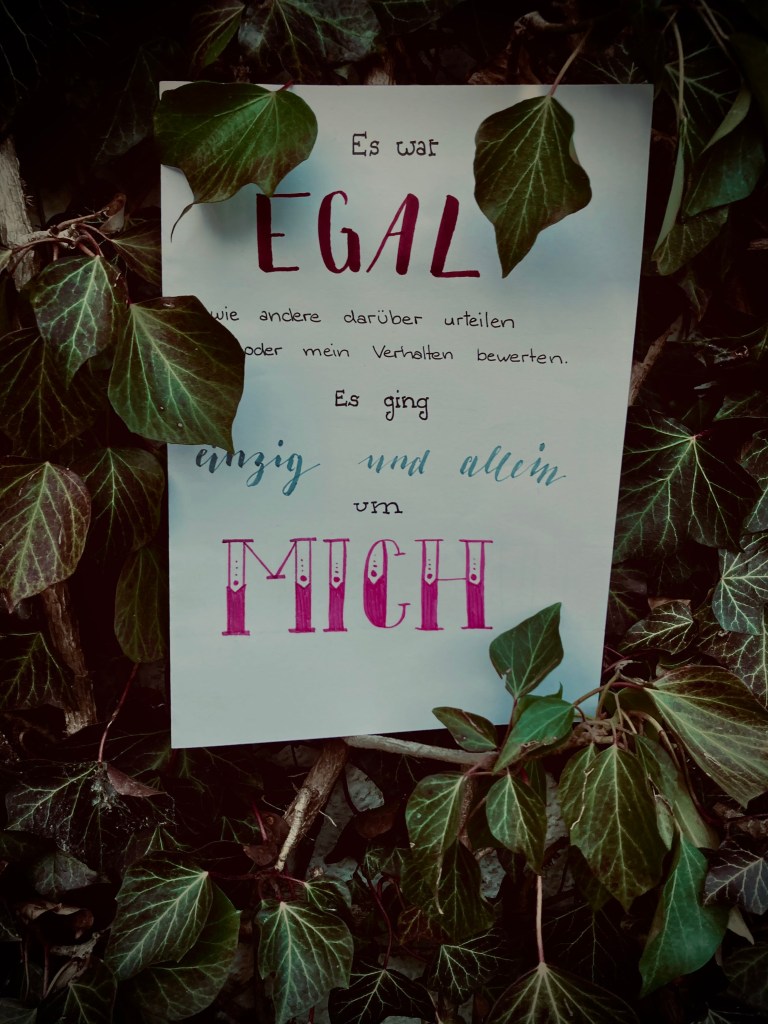 Es war
EGAL
wie andere darüber urteilen
oder mein Verhalten bewerten.
Es ging
einzig und allein
um
MICH